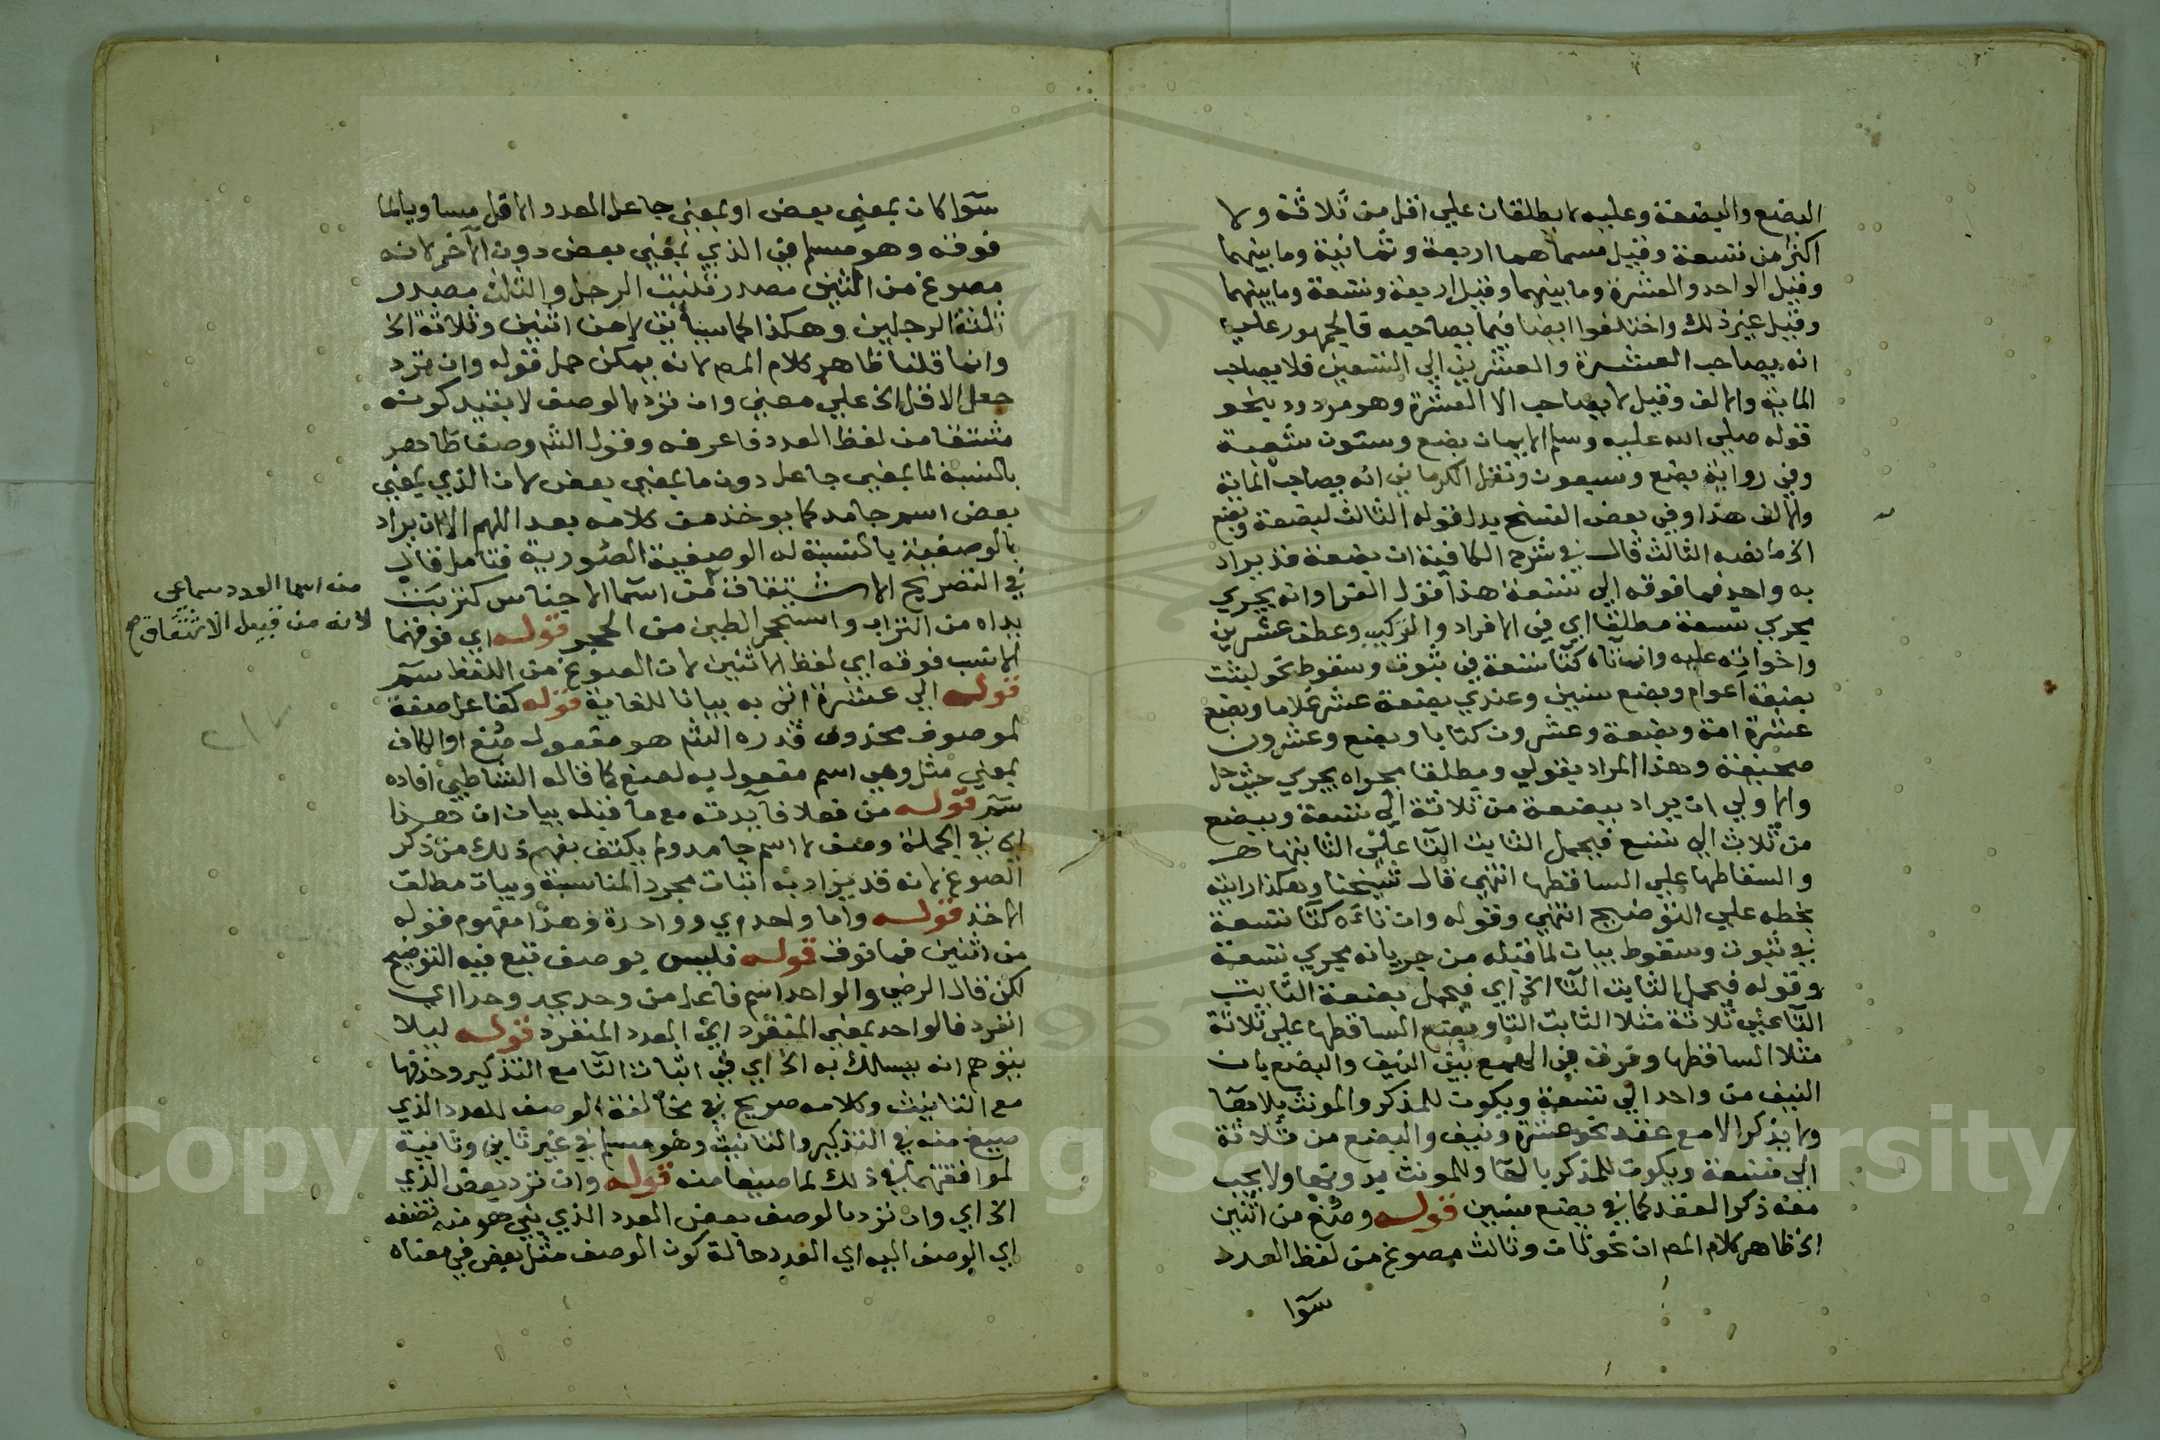 البضع والبضعة وعليه لا يطلقان علي اقل من ثلاثة ولا
اكثر من تسعة وقيل مسماهما اربعة وثمانية وما بينهما
وقيل الواحد والعشرة وما بينهما وقيل اربعة وتسعة وما بينهما
وقيل غير ذلك واختلفوا ايضا فيما يصاحبه فالجمهور علي
انه يصاحب العشرة والعشرين الي التسعين فلا يصاحب
الماية والالف وقيل لا يصاحب الا العشرة وهو مردود بنحو
قوله صلي الله عليه وسلم الايمان بضع وستون شعبة
وفي رواية بضع وسبعون ونقل الكرماني انه يصاحب الماية
والالف هذا وفي بعض النسخ بدل قوله الثالث لبضعة وبضع
الخ ما نصه الثالث قال في شرح الكافية ان بضعة قد يراد
به واحد فما فوقه الي تسعة هذا قول الفرا وانه يجري
مجري تسعة مطلقا اي في الافراد والتركيب وعطف عشرين
واخواته عليه وان تاه كتا تسعة في ثبوت وسقوط نحو لبثت
بضعة اعوام وبضع سنين وعندي بضعة عشر غلاما وبضع
عشرة امة وبضعة وعشرون كتابا وبضع وعشرون
صحيفة وهذا المراد بقولي ومطلقا مجراه يجري حيث حل
والاولي ان يراد ببضعة من ثلاثة الي تسعة وببضع
من ثلاث الي تسع فيحمل الثابت التا علي الثابتها
والسقاطها علي الساقطها انتهي قال شيخنا وهكذا رايته
بخطه علي التوضيح انتهي وقوله وان تاءه كتا تسعة
في ثبوت وسقوط بيان لما قبله من جريانه مجري تسعة
وقوله فيحمل الثابت التا الخ اي فيحمل بضعة الثابت
التا علي ثلاثة مثلا الثابت التا وبضع الساقطها علي ثلاثة
مثلا الساقطها وفرق في الهمع بين النيف والبضع بان
النيف من واحد الي تسعة ويكون للمذكر والمونث بلا هاء
ولا يذكر الا مع عقد نحو عشرة ونيف والبضع من ثلاثة
الي تسعة ويكون للمذكر بالها وللمونث بدونها ولا يجب
معه ذكر العقد كما في بضع سنين قوله وصغ من اثنين
الخ ظاهر كلام المص ان نحو ثان وثالث مصوغ من لفظ العدد
سوا
سوا كان بمعني بعض او بمعني جاعل العدد الاقل مساويا لما
فوقه وهو مسلم في الذي بمعني بعض دون الاخر لانه
مصوغ من الثني مصدر ثنيت الرجل والثلث مصدر
ثلثت الرجلين وهكذا لا من اثنين وثلاثة الخ
وانما قلنا ظاهر كلام المص لانه يمكن حمل قوله وان ترد
جعل الاقل الخ علي معني وان ترد بالوصف لا بقيد كونه
مشتقا من لفظ العدد فاعرفه وقول الش وصفا ظاهر
بالنسبة لما بمعني جاعل دون ما بمعني بعض لان الذي بمعني
بعض اسم جامد كما يوخذ من كلامه بعد اللهم الا ان يراد
بالوصفية بالنسبة له الوصفية الصورية فتامل قال
في التصريح الاشتقاق من اسما الاجناس كتربت
يداه من التراب واستحجر الطين من الحجر قوله اي فوقهما
الانسب فوقه اي لفظ الاثنين لان المصوغ من اللفظ سم
قوله الي عشرة اتي به بيانا للغاية قوله كفاعل صفة
لموصوف محذوف قدره الش هو مفعول صغ او الكاف
بمعني مثل وهي اسم مفعول به لصغ كما قاله الشاطبي افاده
سم قوله من فعلا فايدته مع ما قبله بيان ان هذا
في الجملة وصف لا اسم جامد ولم يكتف بفهم ذلك من ذكر
الصوغ لانه قد يراد به اثبات مجرد المناسبة وبيان مطلق
الاخذ قوله واما واحد وهذا مفهوم قوله
من اثنين فما فوق قوله فليس بوصف تبع فيه التوضيح
لكن قال الرضي والواحد اسم فاعل من وحد يحد وحدا اي
انفرد فالواحد بمعني المنفرد اي العدد المنفرد قوله ليلا
يتوهم انه يسالك به الخ اي في اثبات التا مع التذكير وحذفها
مع التانيث وكلامه صريح في مخالفة الوصف للعدد الذي
صيغ منه في التذكير والتانيث وهو مسلم في غير ثاني وثانية
لموافقتهما في ذلك لما صيغا منه قوله وان ترد بعض الذي
الخ اي وان ترد بالوصف بعض العدد الذي بني هو منه تضفه
اي الوصف اليه اي العدد حالة كون الوصف مثل بعض في معناه
من اسما العدد سماعي
لانه من قبيل الاشتقاق صح
Copyright © King Saud University
1957